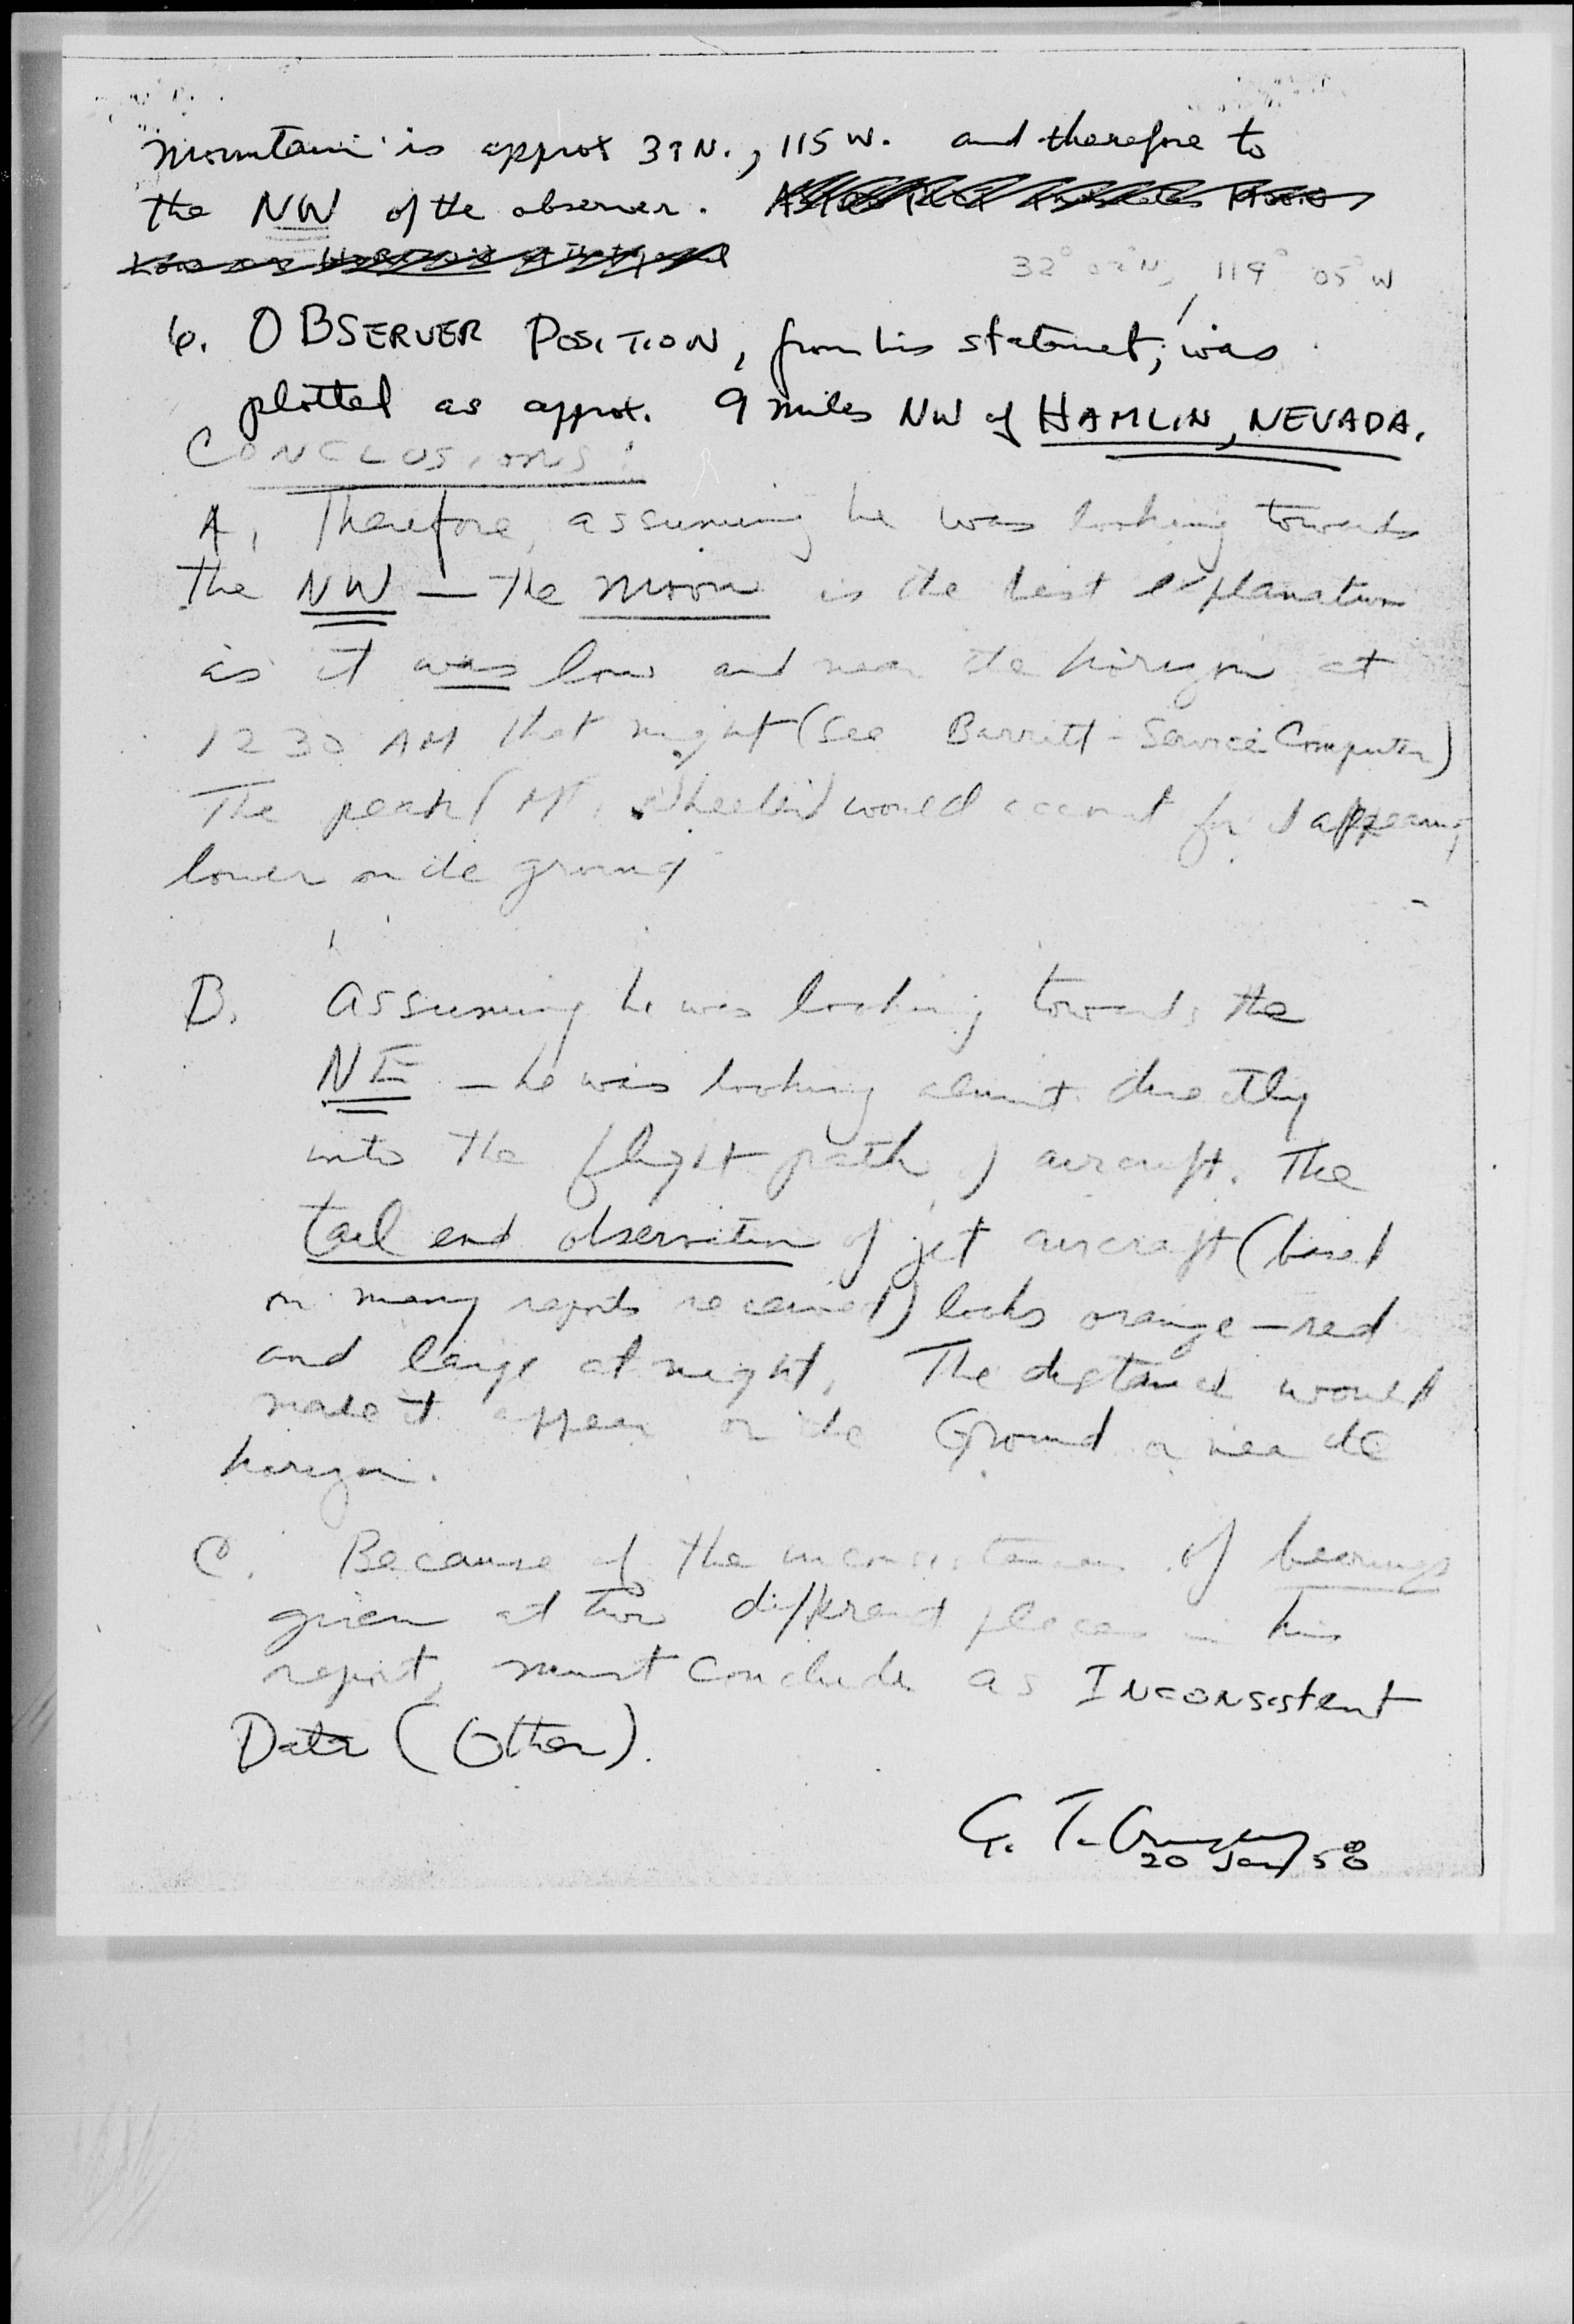 mountain is approx 39 N., 115 W. and therefore to
the NW of the observer.
119° 05' W
6. OBSERVER POSITION, from his statement, was
plotted as approx. 9 miles NW of HAMLIN, NEVADA.
CONCLUSIONS:
A. Therefore, assuming he was looking towards
the NW — the moon is the best explanation
as it was low and near the horizon at
1230 AM that night (See Barritt-Service Computer)
The peak (Mt. Wheeler) would account for it appearing
lower on the ground
B. Assuming he was looking towards the
NE — he was looking almost directly
into the flight path of aircraft. The
tail end observation of jet aircraft (based
on many reports received) looks orange-red
and large at night. The distance would
make it appear on the Ground or near the
horizon.
C. Because of the inconsistencies of bearings
given at two different places in his
report, must conclude as INCONSistent
Data (Other).
G. T.
20 Jan 58